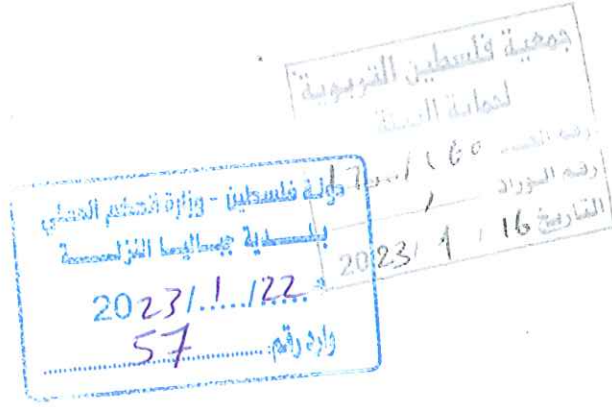 جمعية فلسطين التربوية
لحماية البيئة
رقم
رقم الوارد /
التاريخ 16 / 1 / 2023
دولة فلسطين - وزارة الحكم المحلي
بلدية جباليا النزلة
2023/1/22
وارد رقم 57